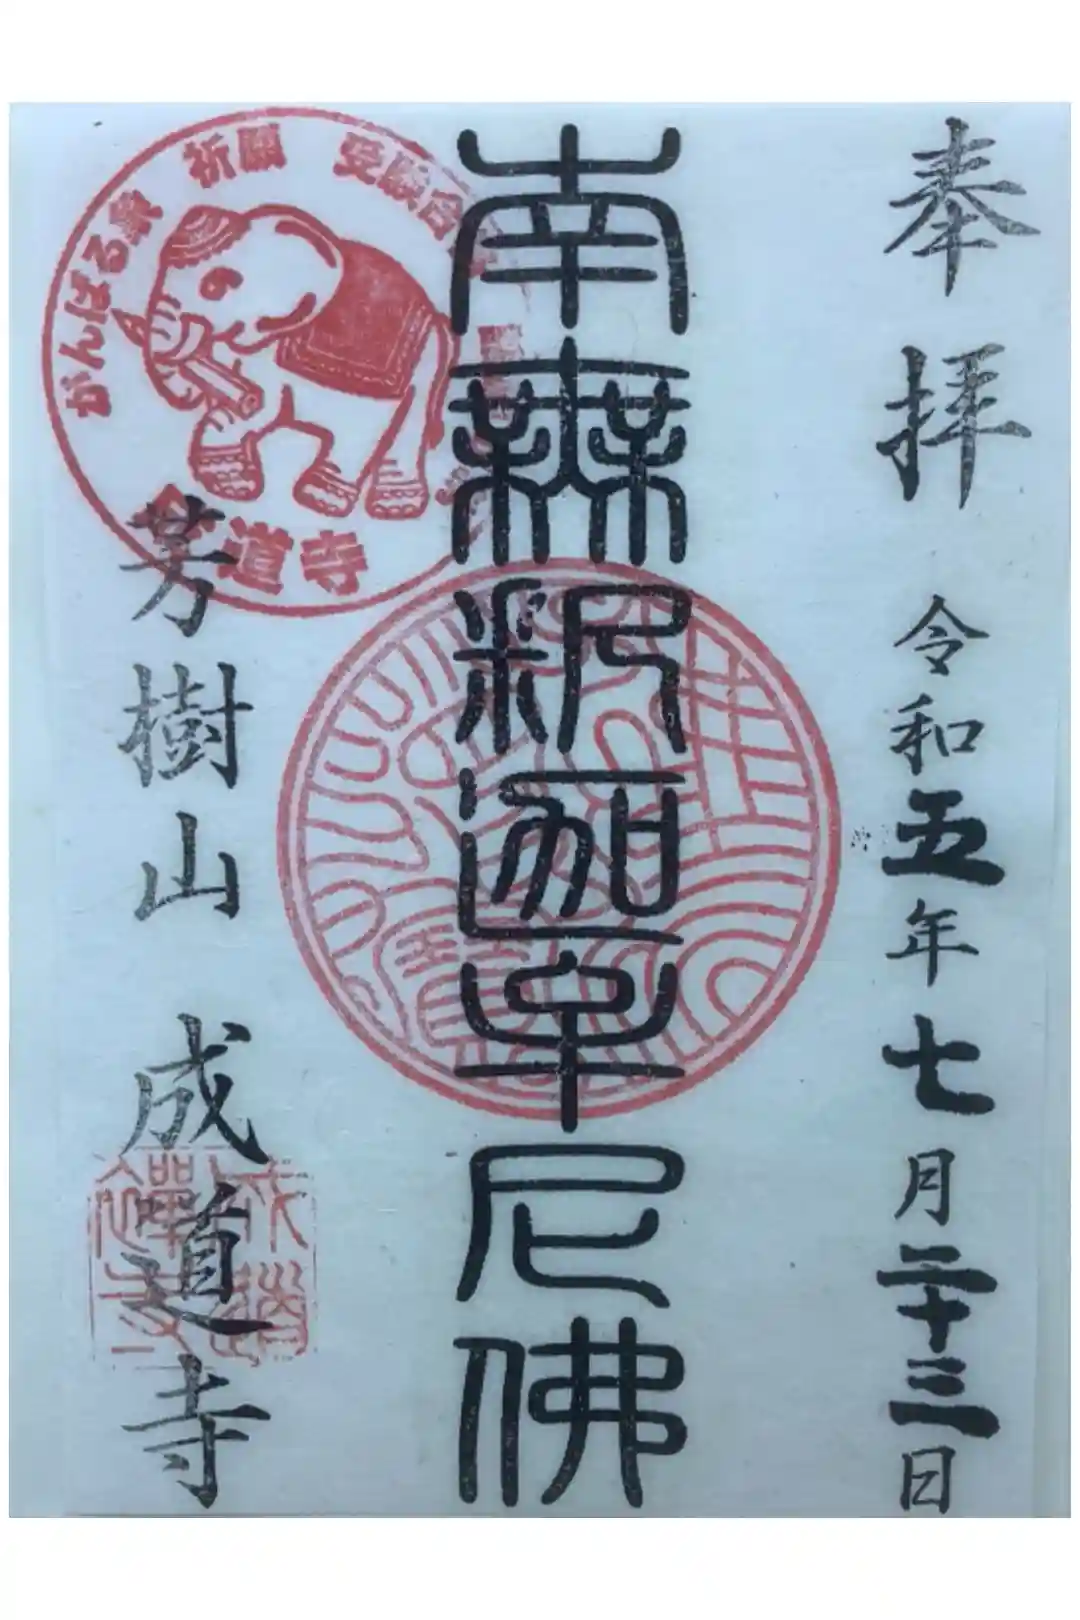 奉拝 令和五年七月二十三日
南無釈迦牟尼佛
がんばる象 祈願 受験合
道寺
芳樹山 成道寺